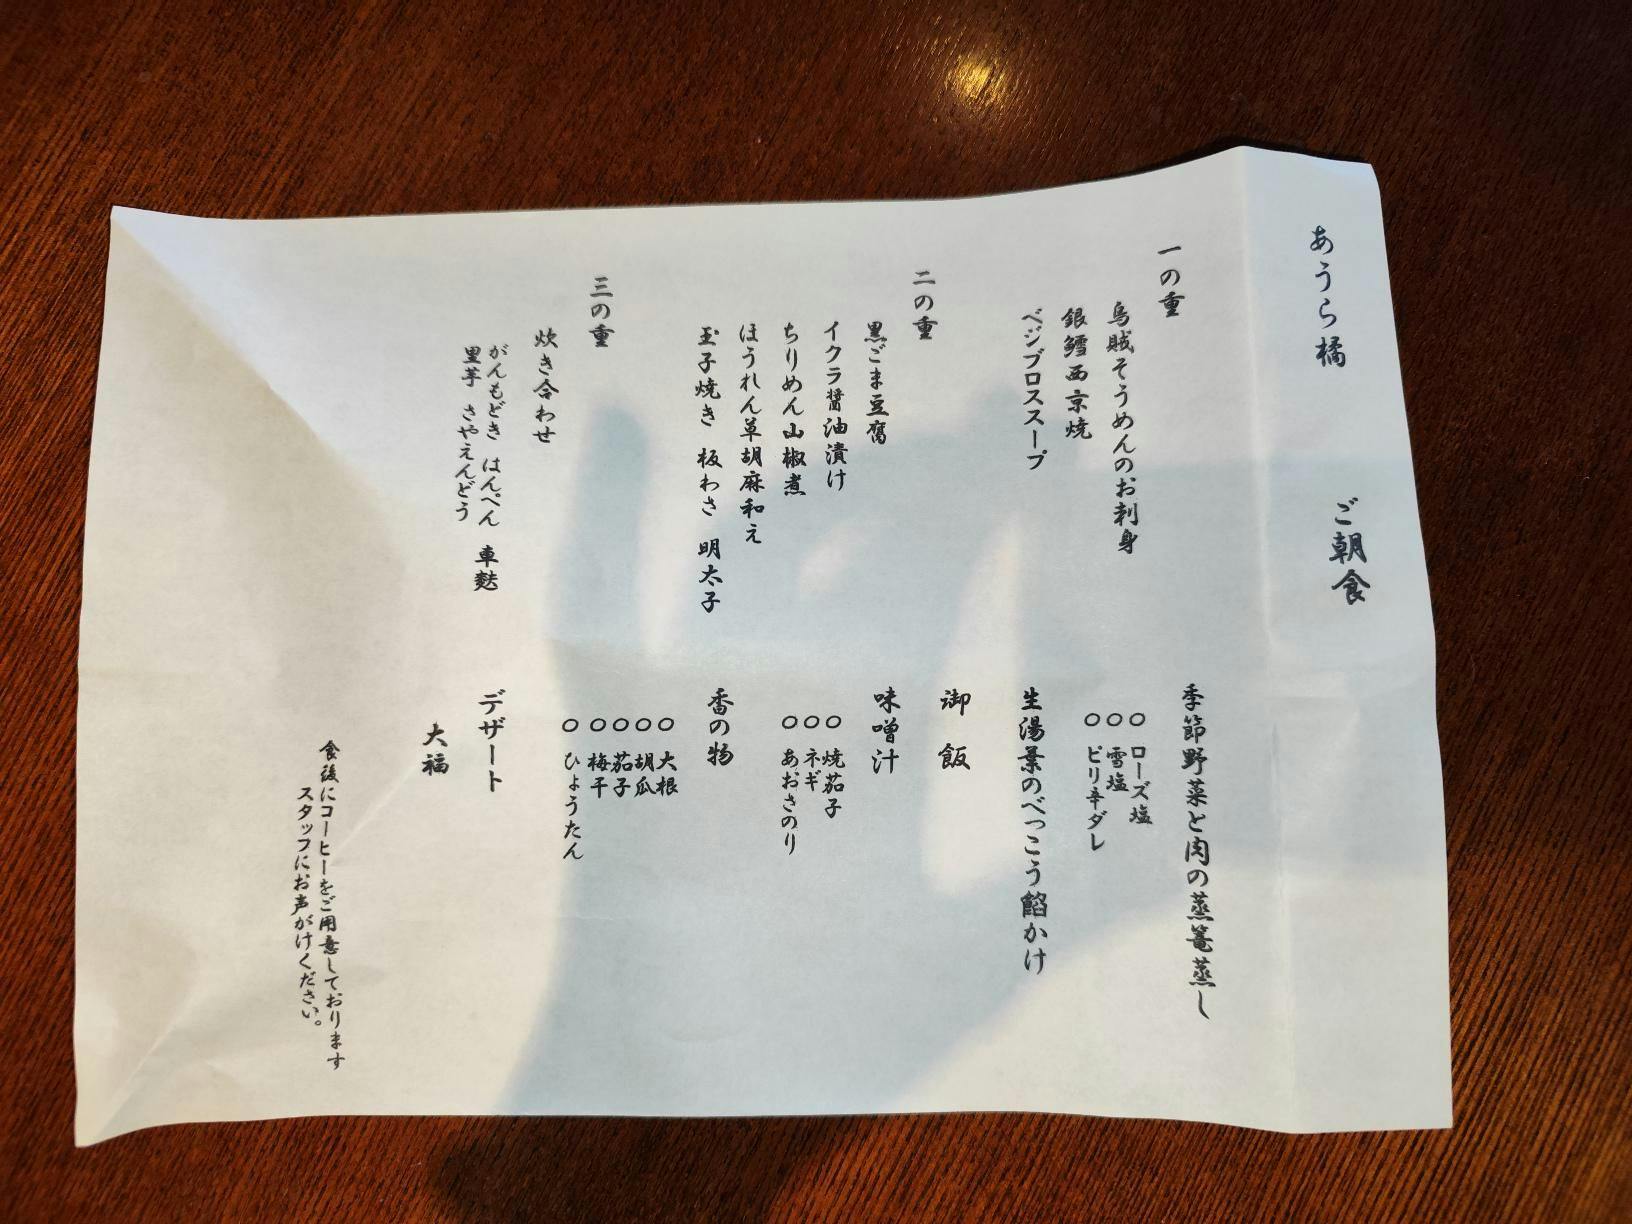 あうら橘　ご朝食
一の重
烏賊そうめんのお刺身
銀鱈西京焼
ベジブロススープ
二の重
黒ごま豆腐
イクラ醤油漬け
ちりめん山椒煮
ほうれん草胡麻和え
玉子焼き　板わさ　明太子
三の重
炊き合わせ
がんもどき　はんぺん　車麩
里芋　さやえんどう
季節野菜と肉の蒸篭蒸し
○ ローズ塩
○ 雪塩
○ ピリ辛ダレ
生湯葉のべっこう餡かけ
御飯
味噌汁
○ 焼茄子
○ ネギ
○ あおさのり
香の物
○ 大根
○ 胡瓜
○ 茄子
○ 梅干
○ ひょうたん
デザート
大福
食後にコーヒーをご用意しております
スタッフにお声がけください。